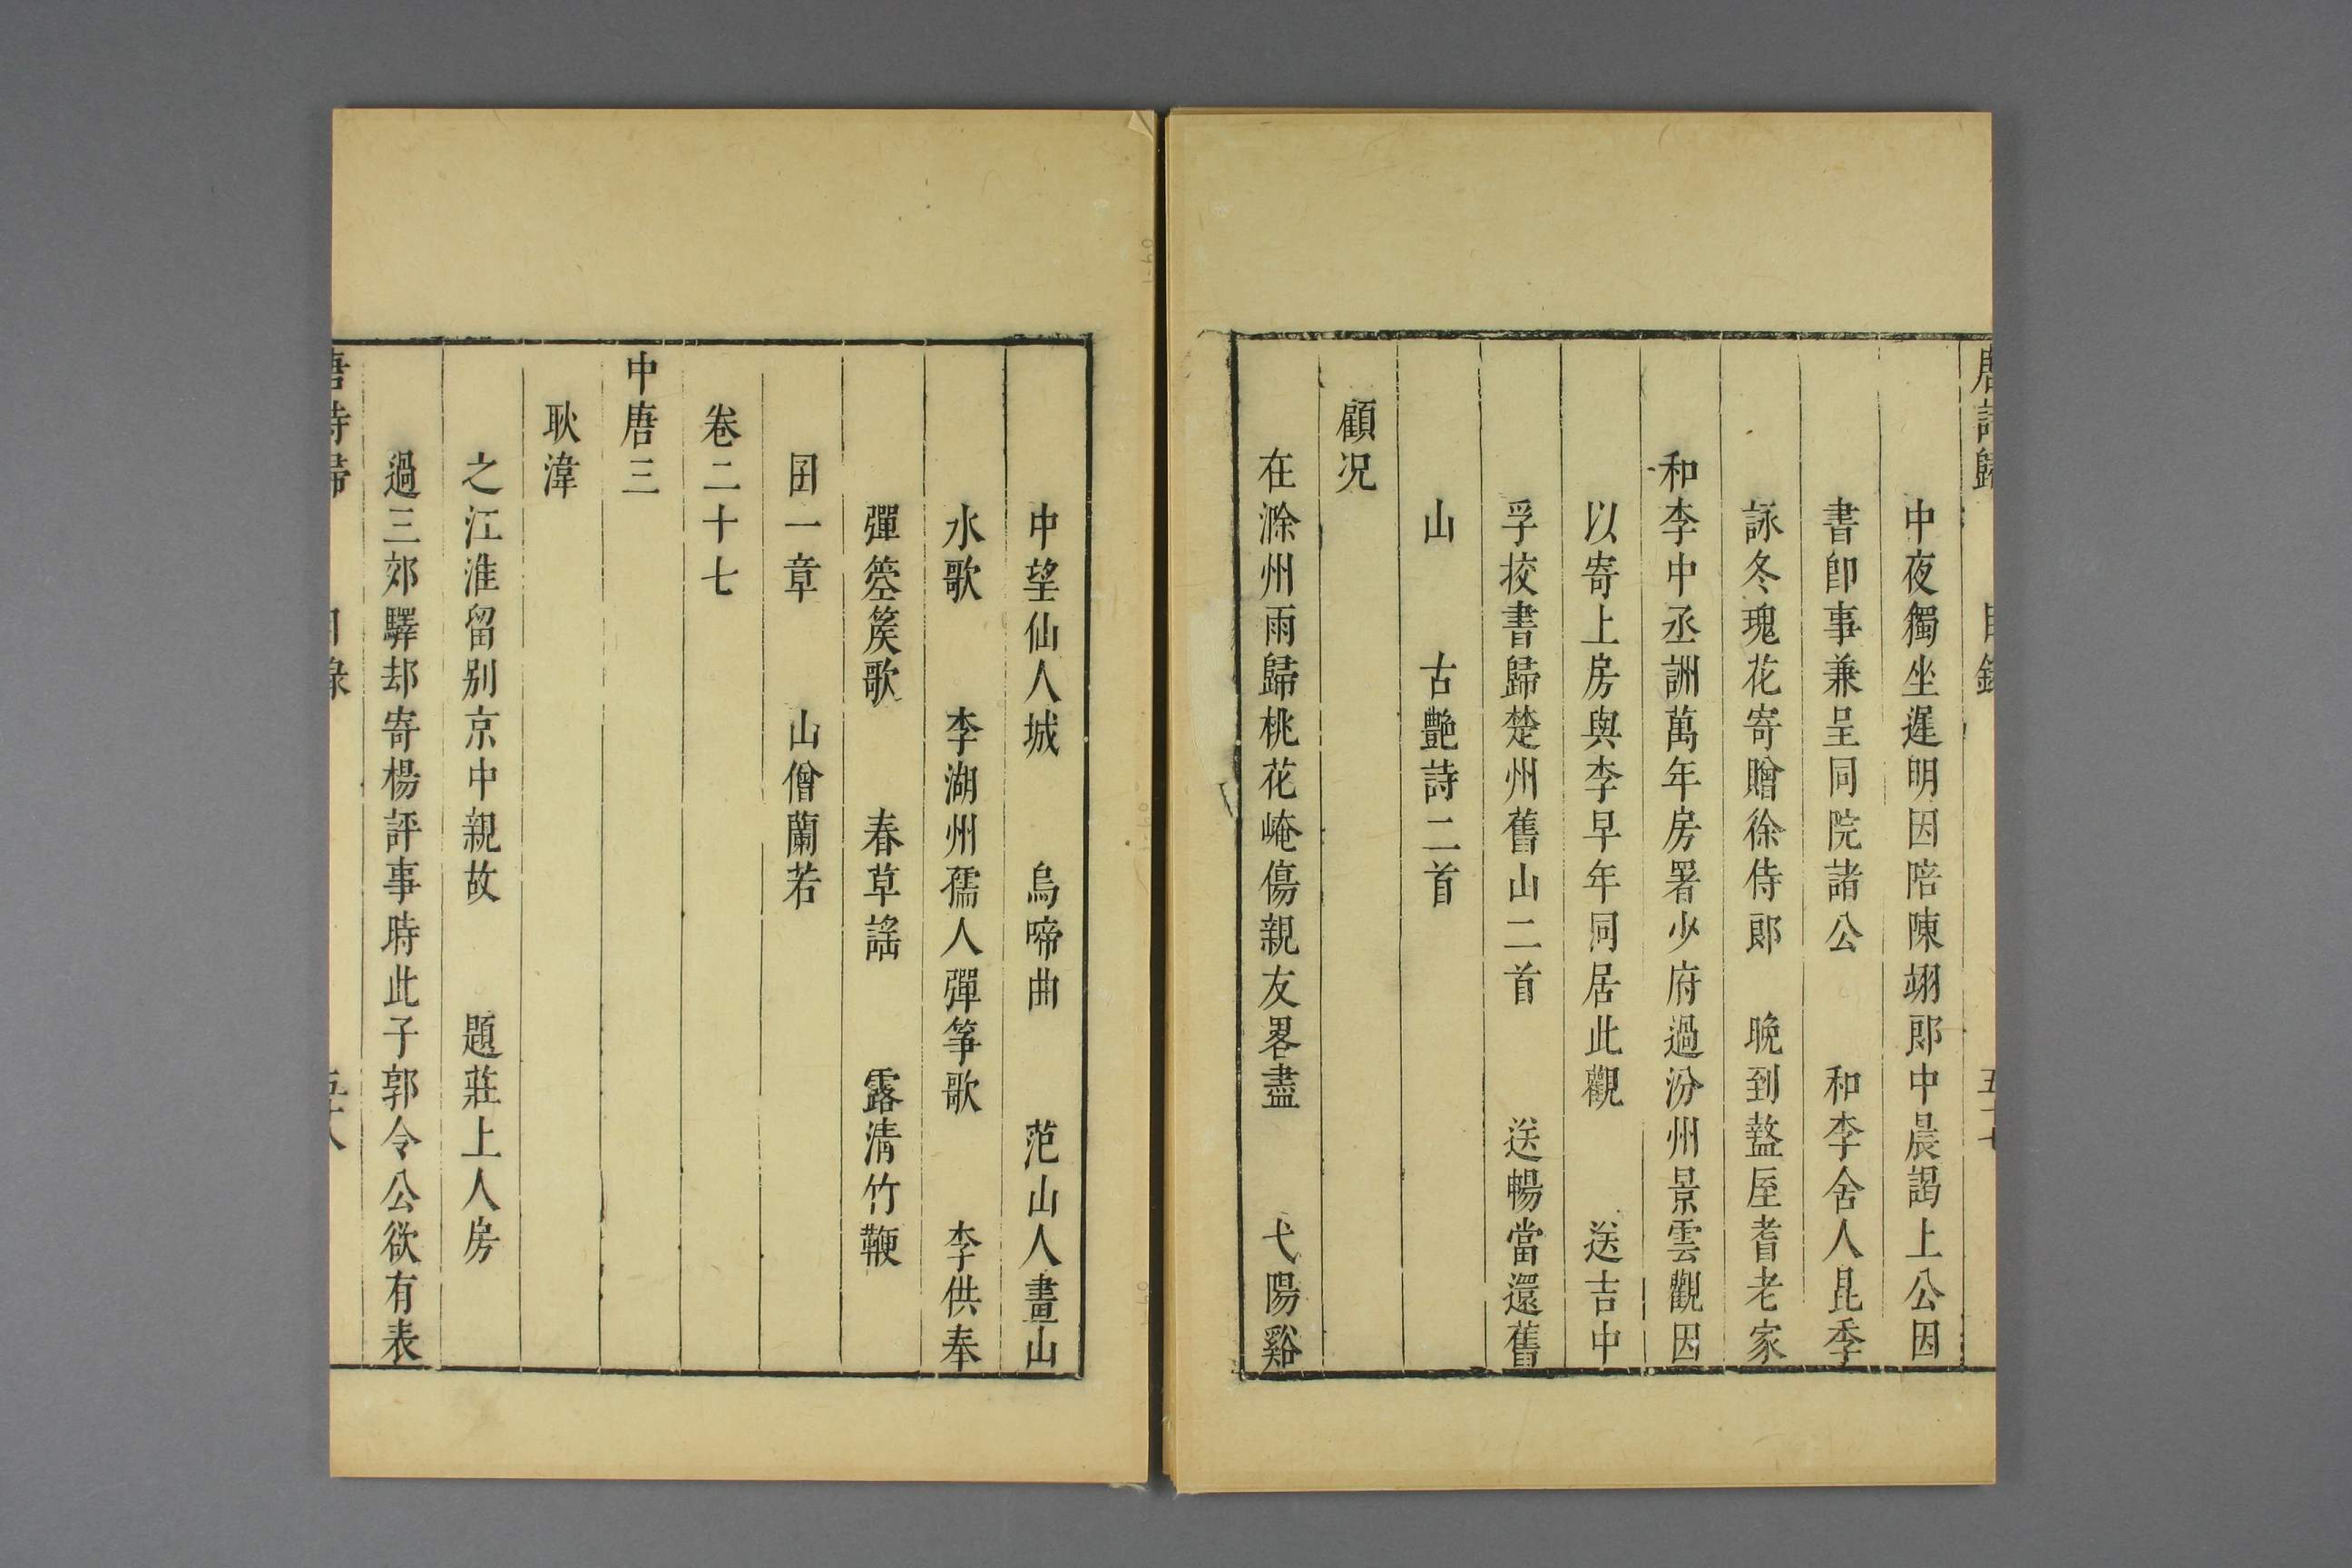 唐詩歸 目錄
中夜獨坐遲明因陪陳翊郎中晨謁上公因
書卽事兼呈同院諸公 和李舍人昆季
詠冬瑰花寄贈徐侍郎 晚到盩厔耆老家
和李中丞詶萬年房署少府過汾州景雲觀因
以寄上房與李早年同居此觀 送吉中
孚挍書歸楚州舊山二首 送暢當還舊
山 古艷詩二首
顧况
在滁州雨歸桃花崦傷親友畧盡 弋陽谿
中望仙人城 烏啼曲 范山人畫山
水歌 李湖州孺人彈筝歌 李供奉
彈箜篌歌 春草謠 露淸竹鞭
囝一章 山僧蘭若
卷二十七
中唐三
耿湋
之江淮留别京中親故 題莊上人房
過三郊驛却寄楊評事時此子郭令公欲有表
唐詩歸 目錄